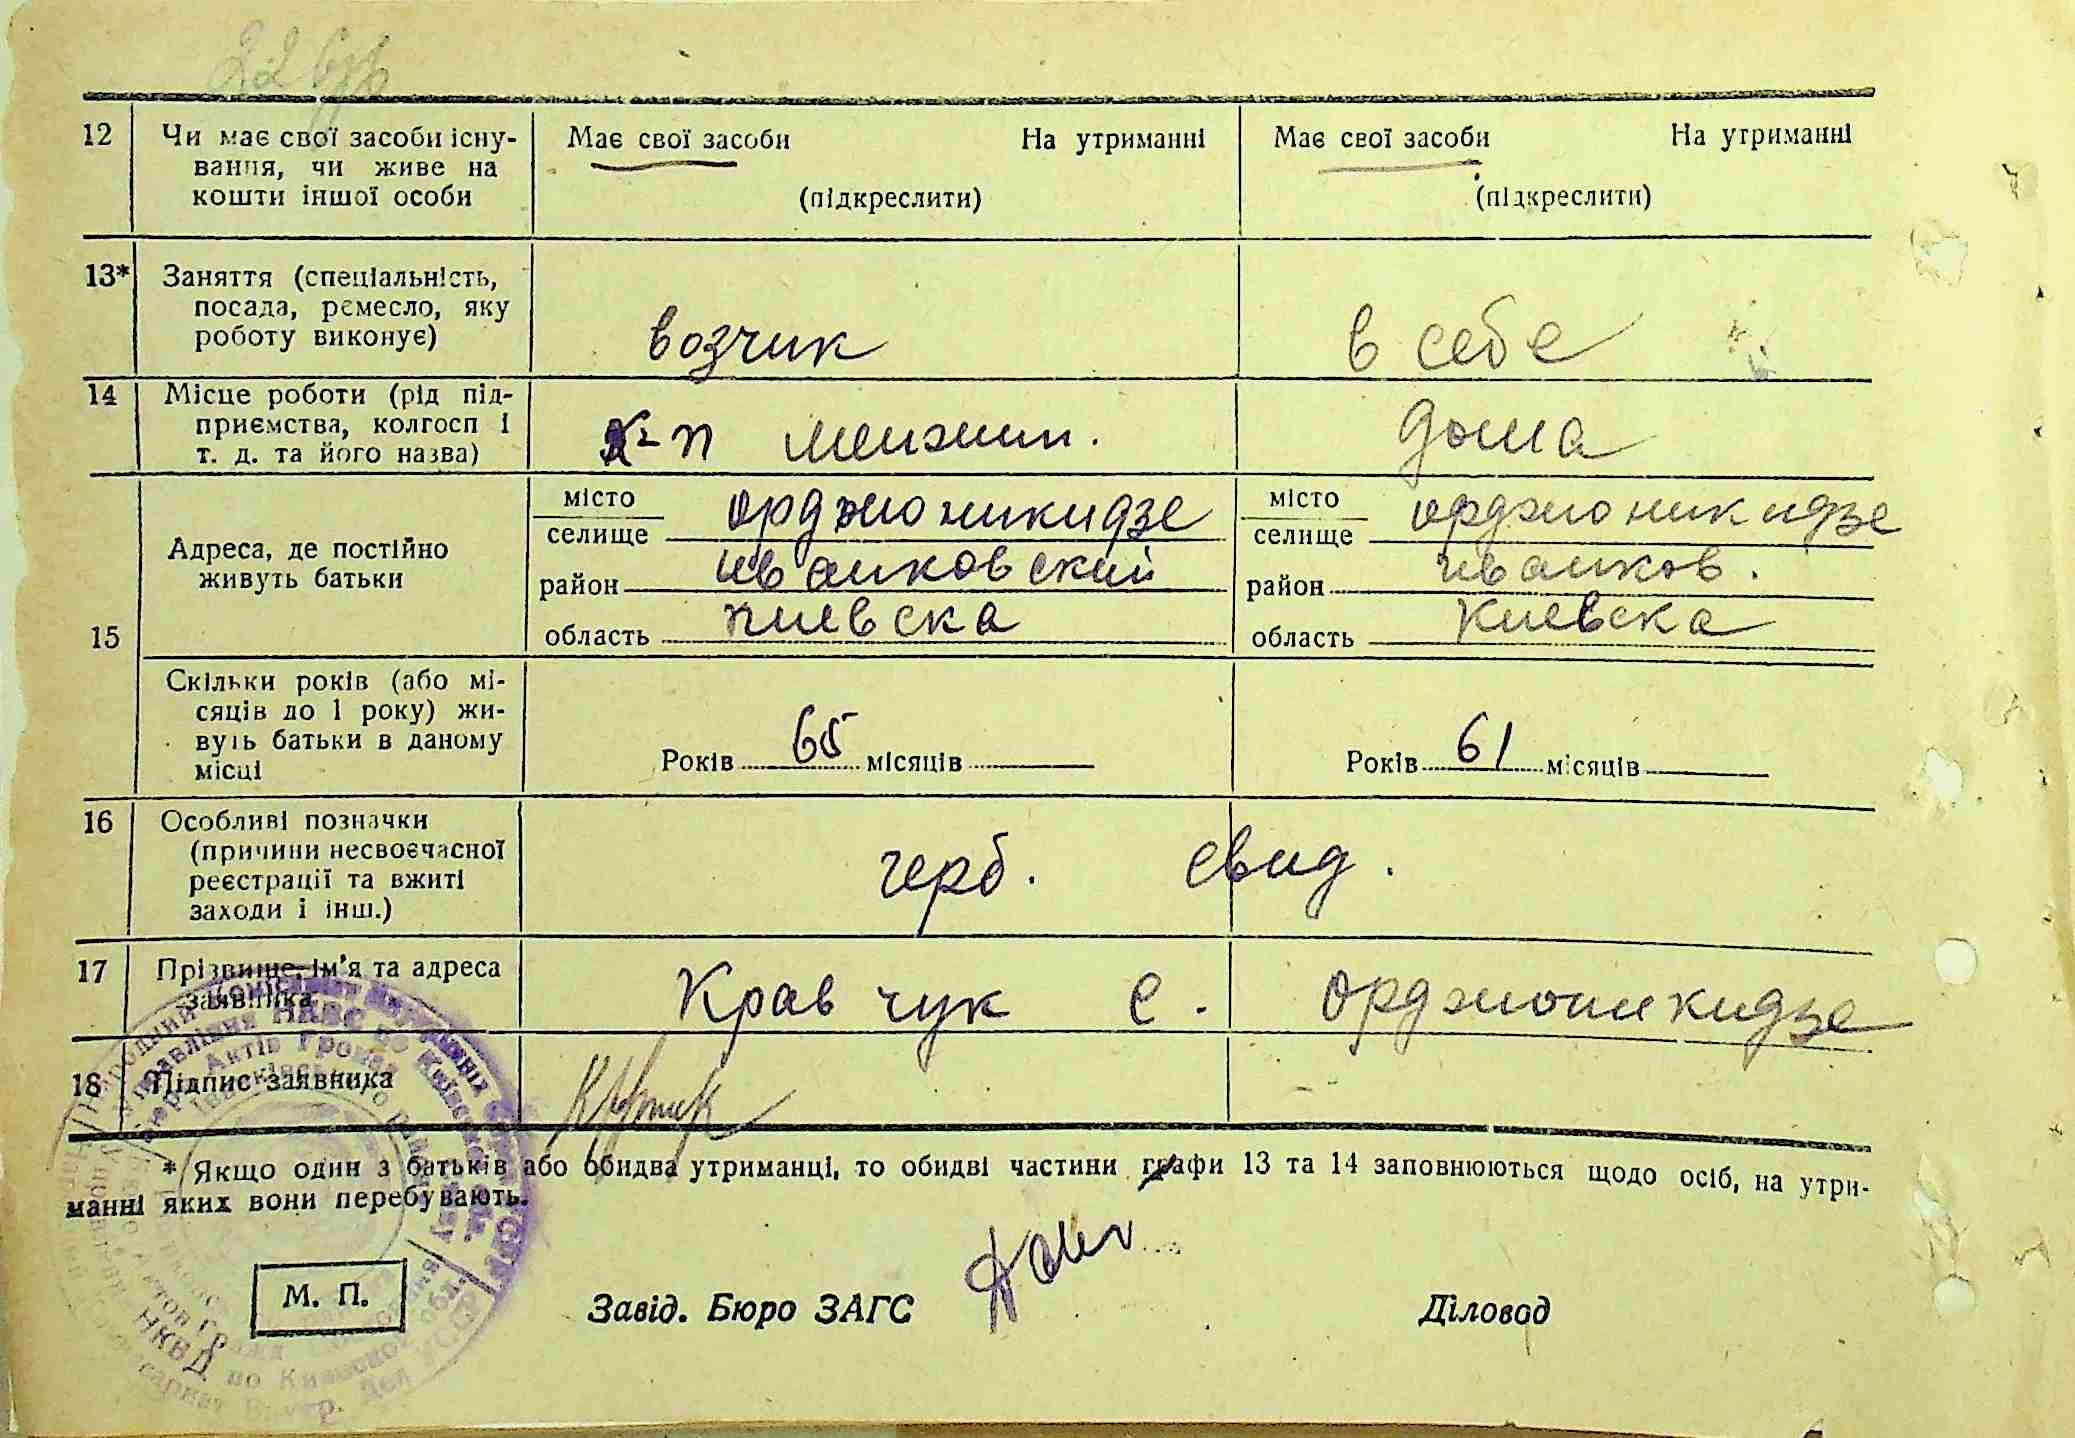 12 Чи має свої засоби існу-
вання, чи живе на
кошти іншої особи
Має свої засоби На утриманні
(підкреслити)
Має свої засоби На утриманні
(підкреслити)
13* Заняття (спеціальність,
посада, ремесло, яку
роботу виконує)
возчик
в себе
14 Місце роботи (рід під-
приємства, колгосп і
т. д. та його назва)
к-п менжин.
дома
15 Адреса, де постійно
живуть батьки
місто
селище орджоникидзе
район иванковский
область киевска
місто
селище орджоникидзе
район иванков.
область киевска
Скільки років (або мі-
сяців до 1 року) жи-
вуть батьки в даному
місці
Років 65 місяців
Років 61 місяців
16 Особливі позначки
(причини несвоєчасної
реєстрації та вжиті
заходи і інш.)
герб. свид.
17 Прізвище, ім'я та адреса
заявника
Кравчук Є. орджоникидзе
18 Підпис заявника
* Якщо один з батьків або обидва утриманці, то обидві частини графи 13 та 14 заповнюються щодо осіб, на утри-
манні яких вони перебувають.
М. П.
Завід. Бюро ЗАГС
Діловод